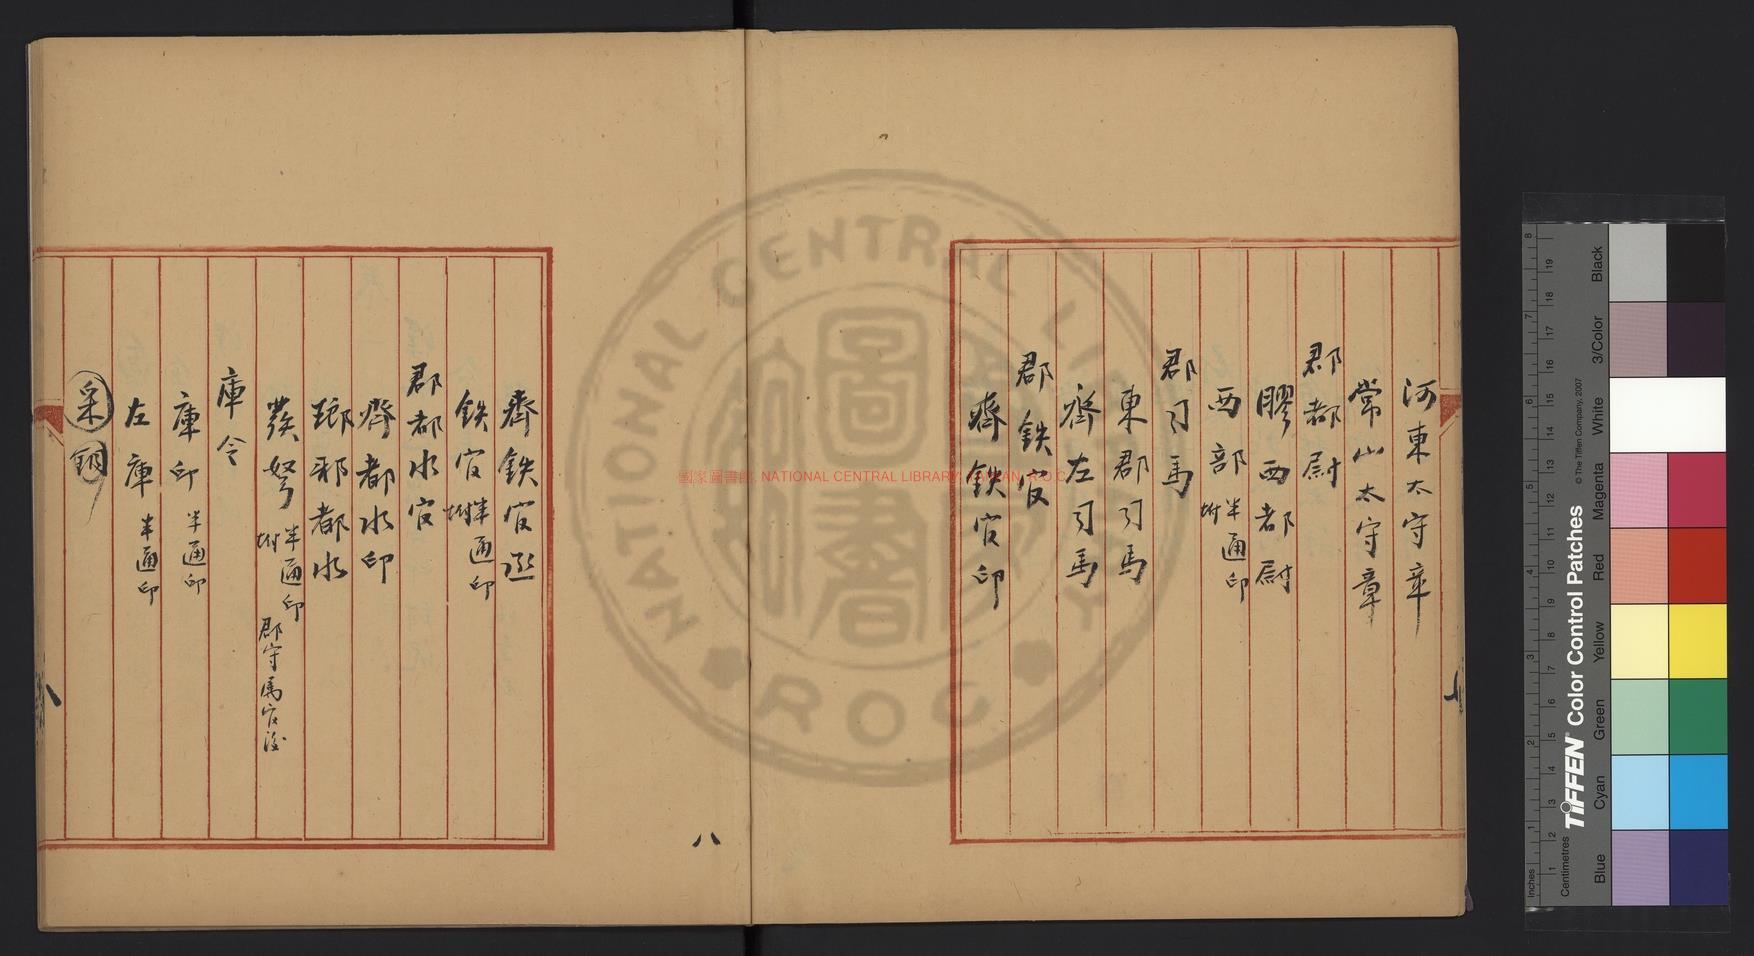 河東太守章
常山太守章
郡都尉
膠西都尉
西部 半通印 坿
郡司馬
東郡司馬
齊左司馬
郡鉄官
齊鉄官印
齊鉄官丞
鉄官 半通印 坿
郡都水官
齊都水印
琅邪都水
發弩 半通印 坿 郡守馬官後
庫令
庫印 半通印
左庫 半通印
采銅
八
國家圖書館, NATIONAL CENTRAL LIBRARY, TAIWAN, R.O.C
NATIONAL CENTRAL LIBRARY
ROC
圖書
TIFFEN Color Control Patches
© The Tiffen Company, 2007
Inches
Centimetres
Blue Cyan Green Yellow Red Magenta White 3/Color Black